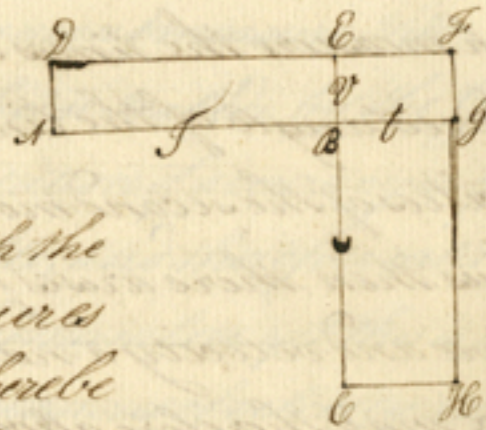 D E F
V
A T B t G
h the
ures
herebe
C H